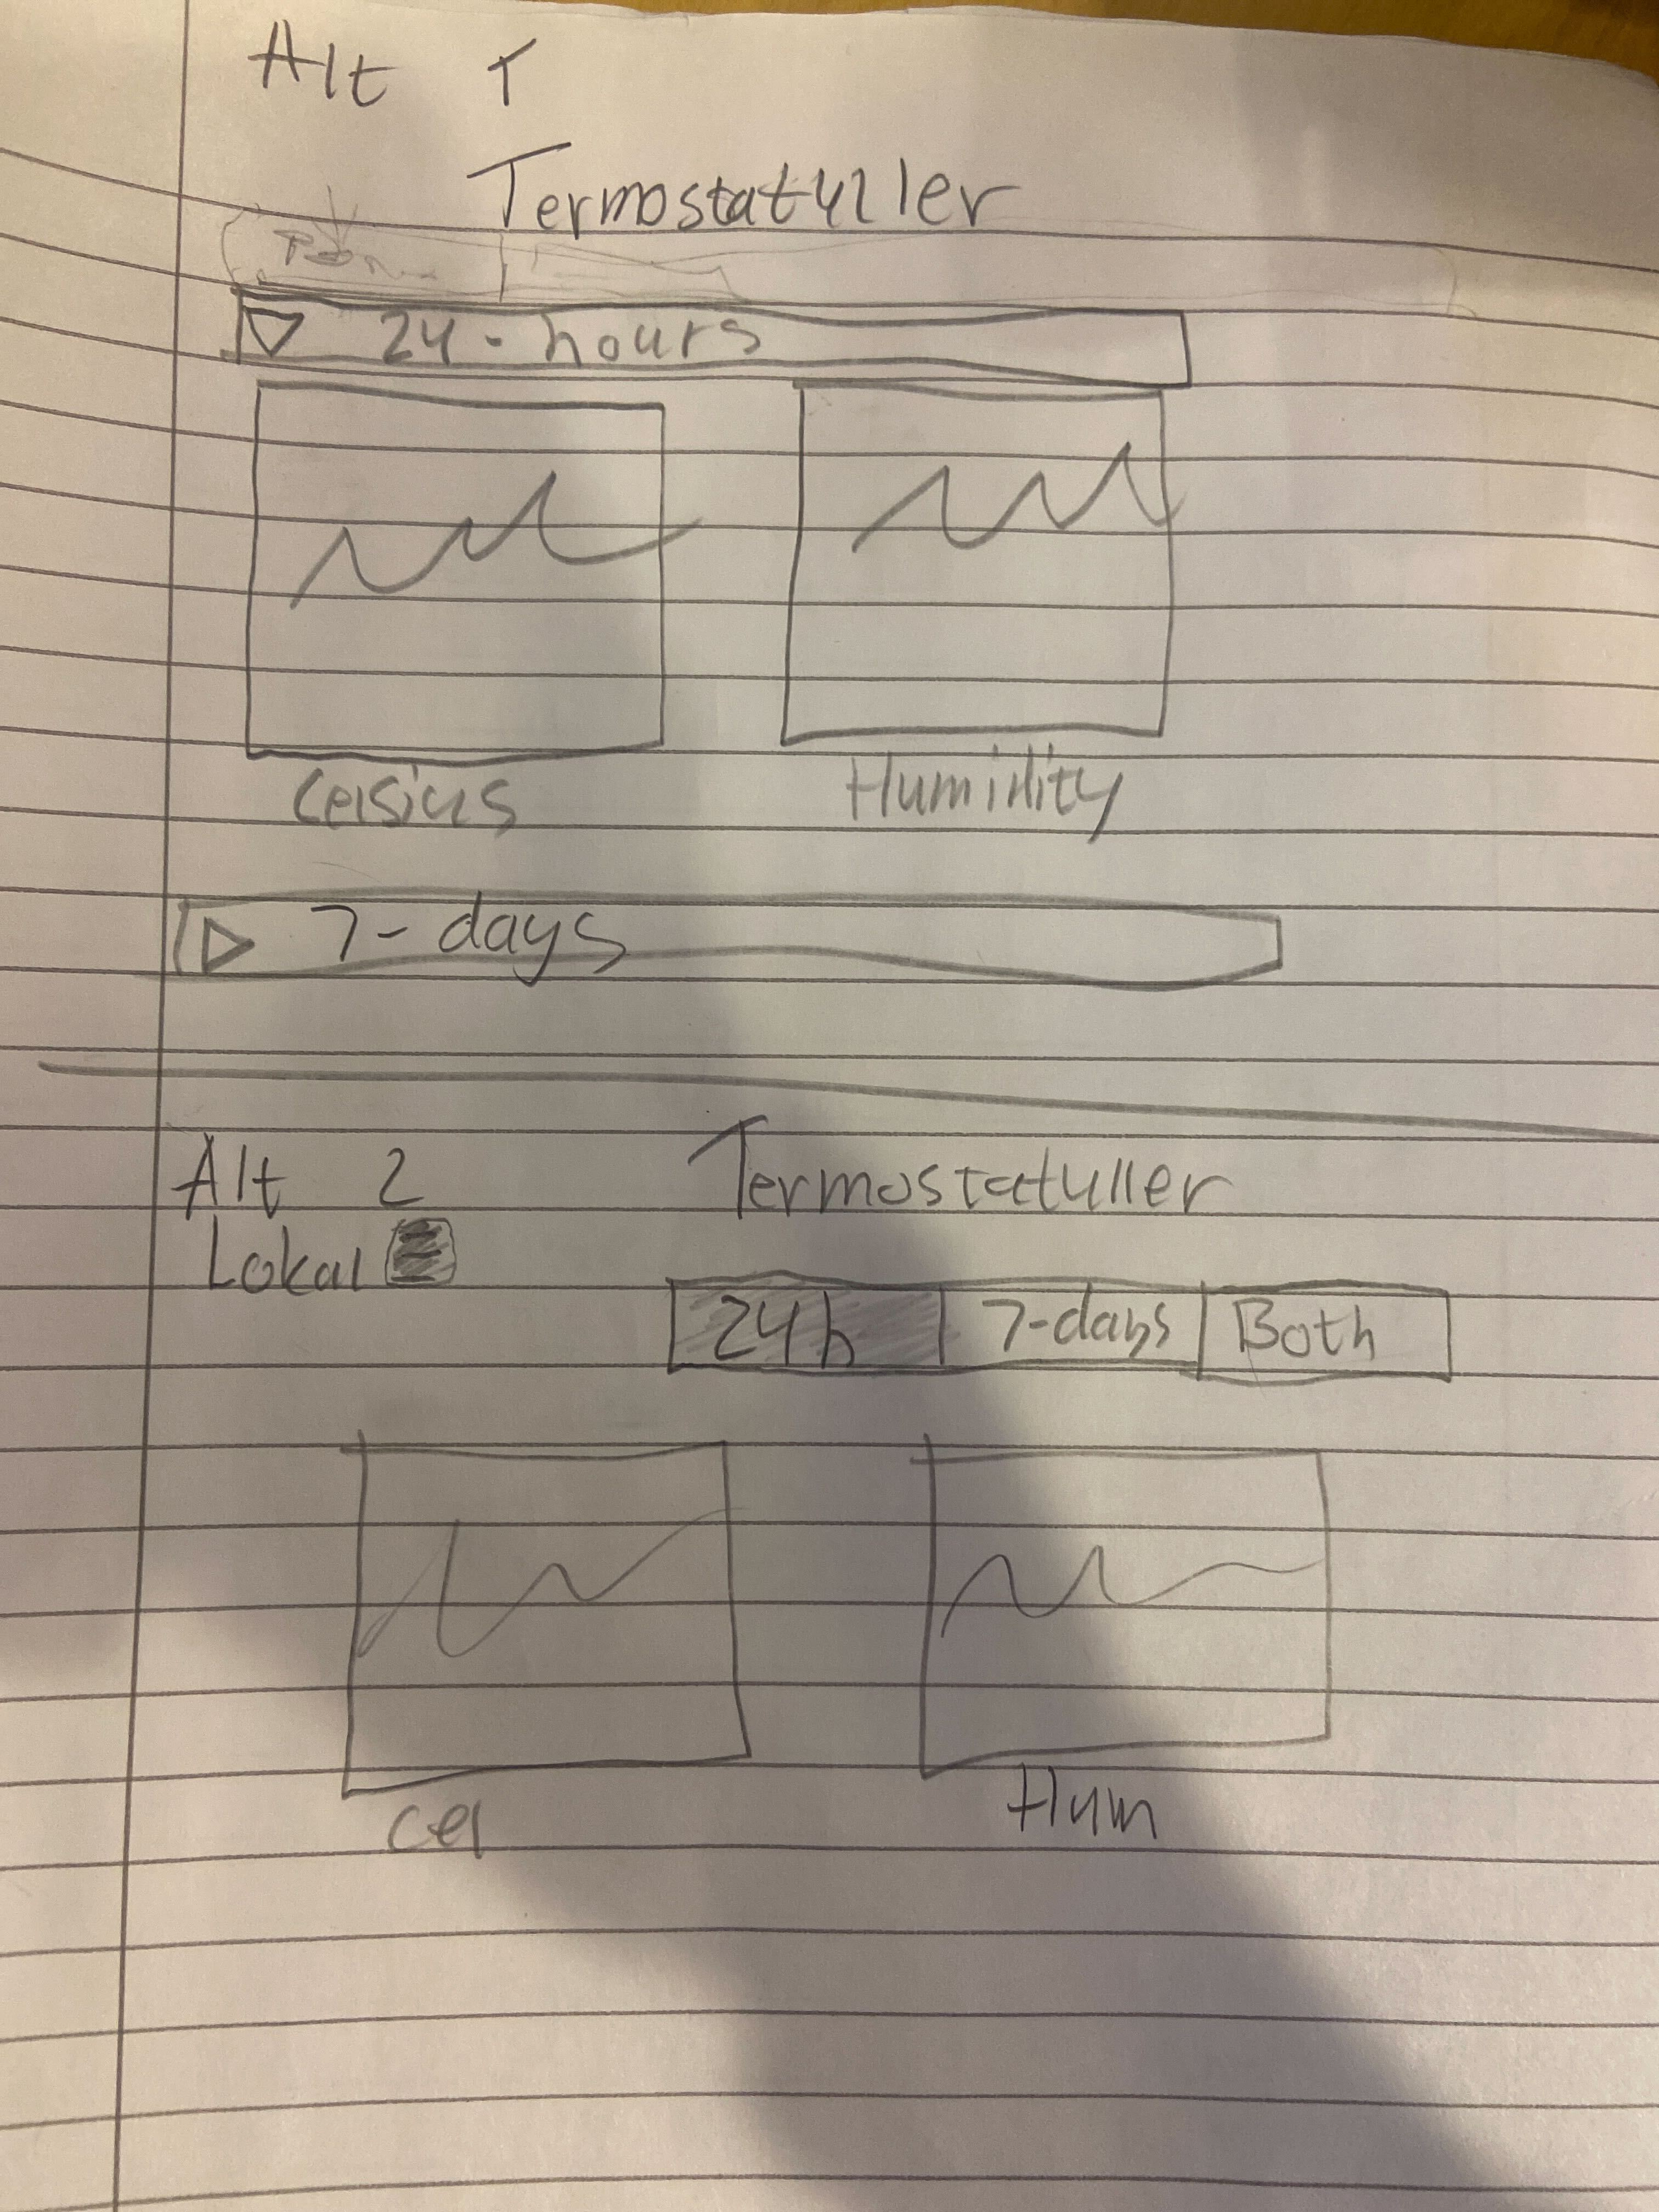 Alt 1
Termostatyller
24-hours
Celsius
Humidity
7-days
Alt 2
Termostatyller
Lokal
24h 7-days Both
Cel
Hum